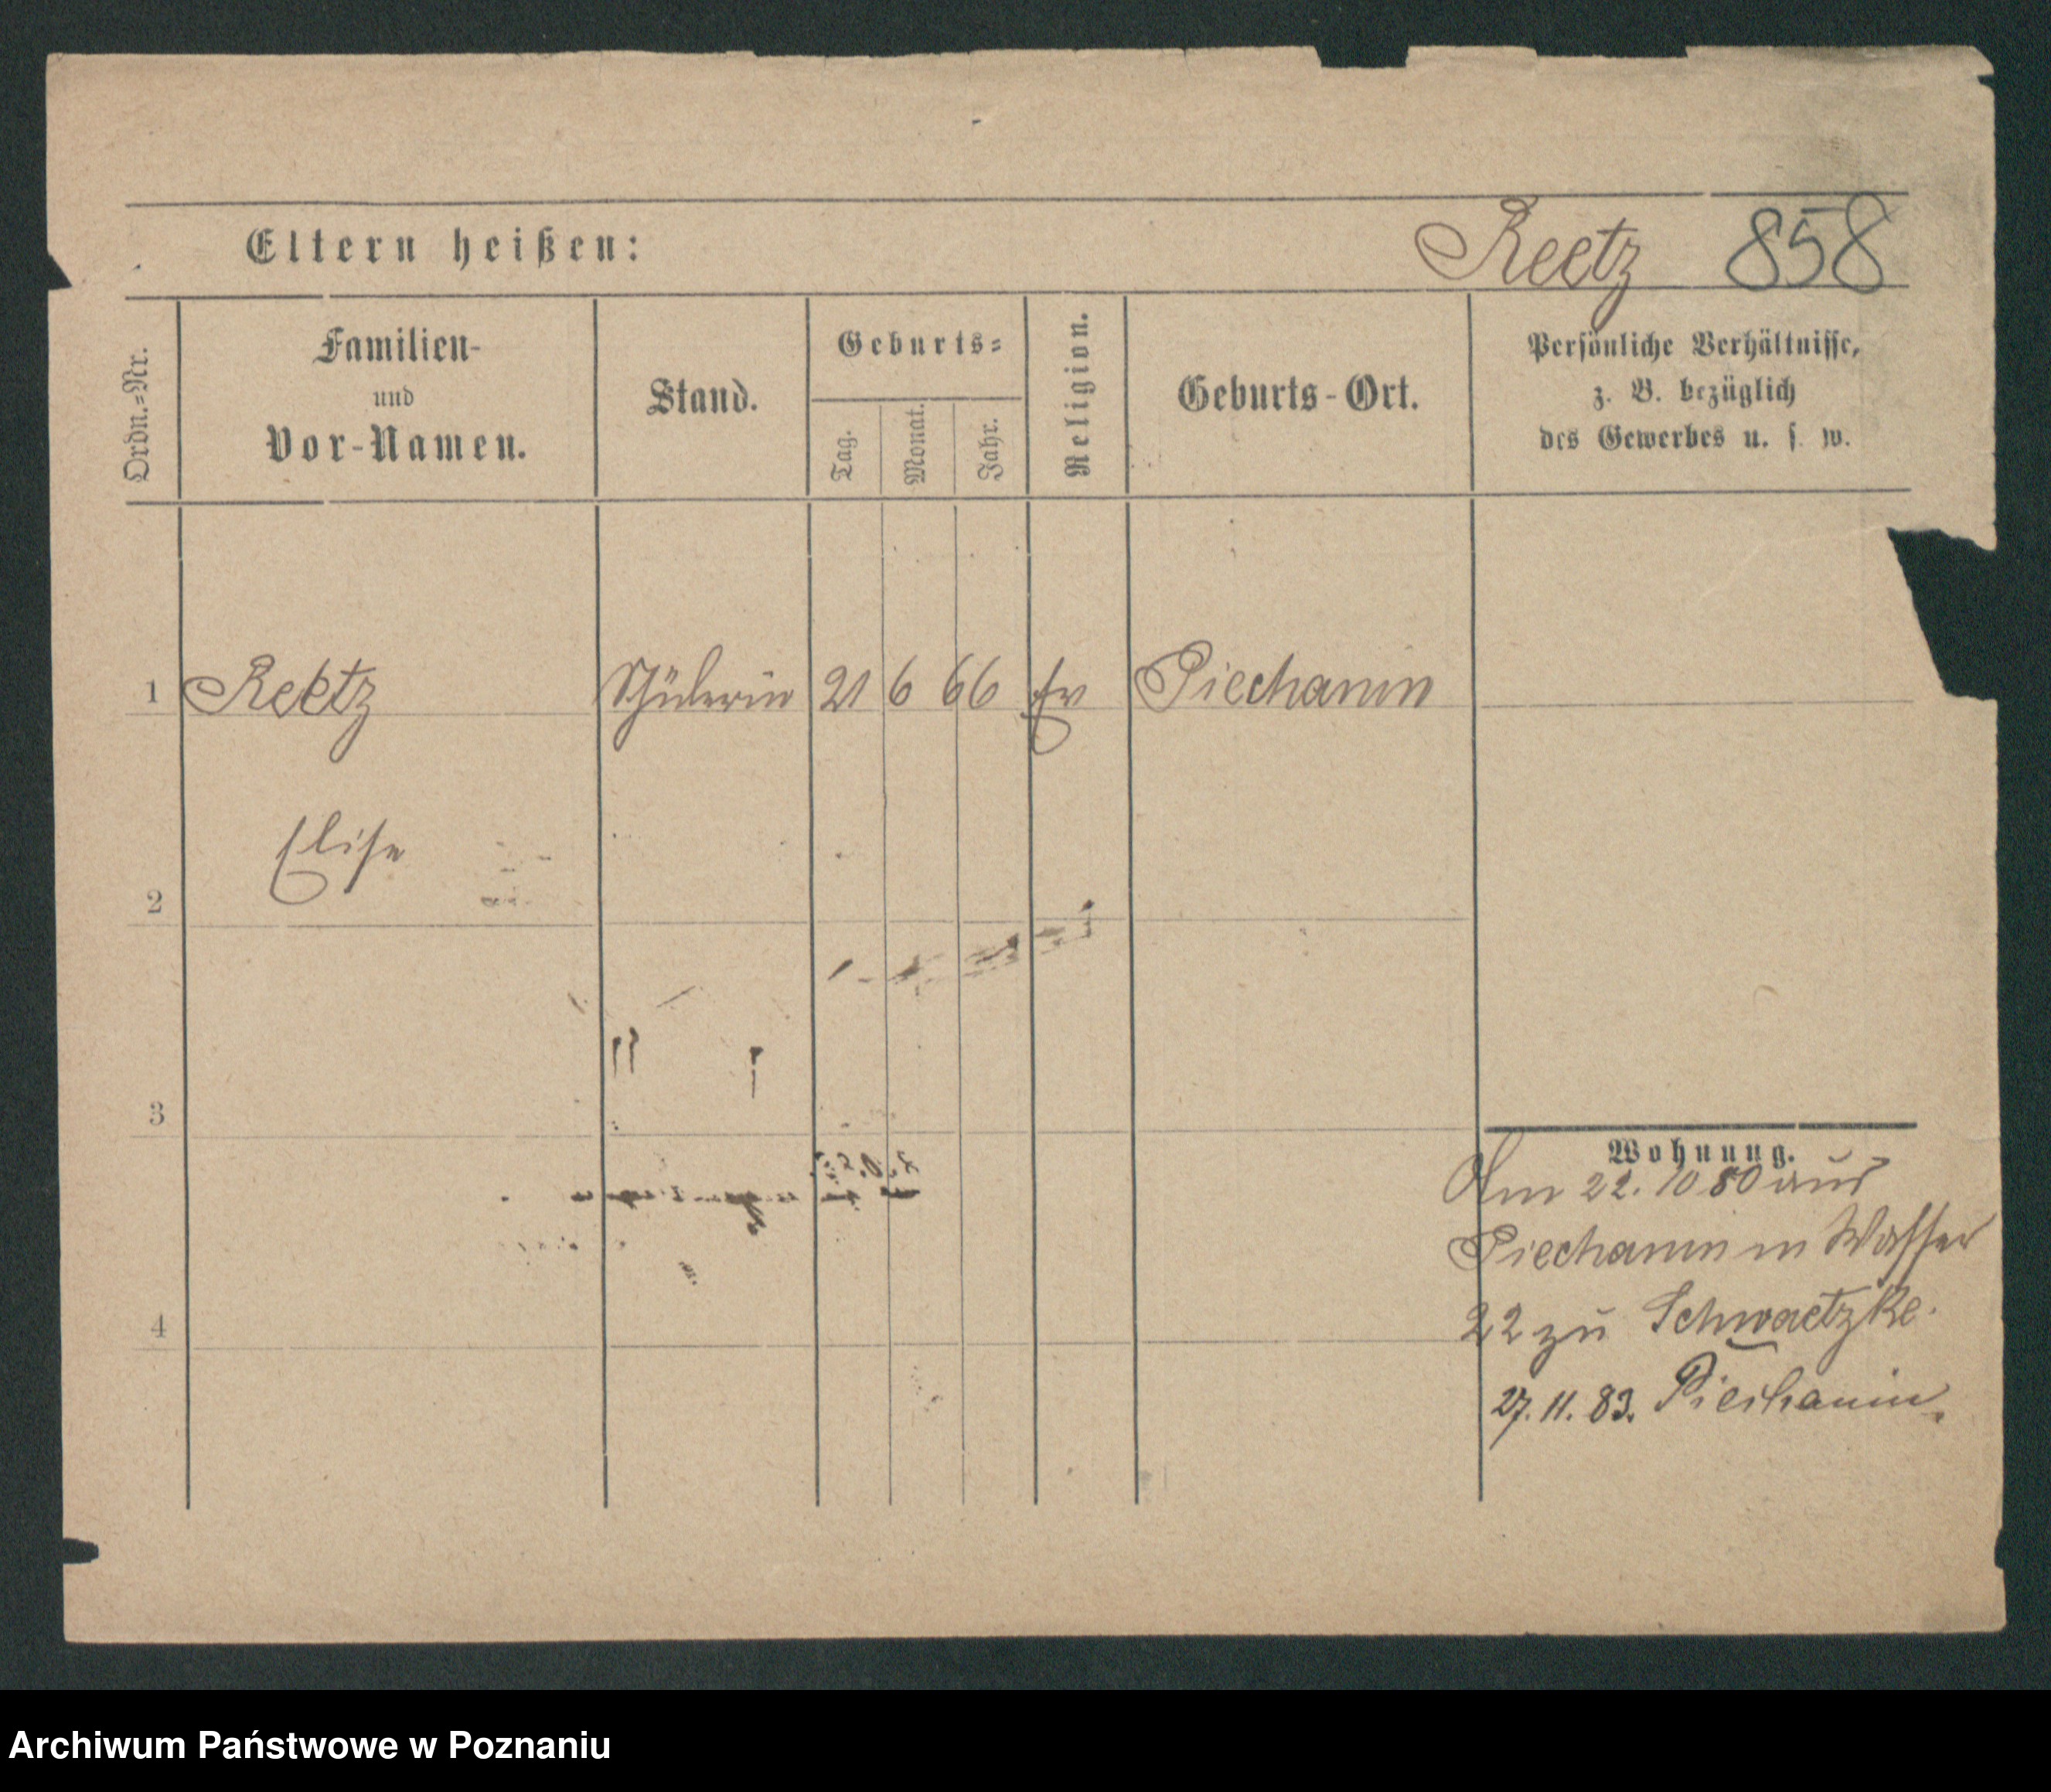 Eltern heißen: Reetz 858
Ordn.-Nr.
Familien-
und
Vor-Namen.
Stand.
Geburts-
Tag.
Monat.
Jahr.
Religion.
Geburts-Ort.
Persönliche Verhältnisse,
z. B. bezüglich
des Gewerbes u. s. w.
1 Reetz Schülerin 21 6 66 Ev Piechanin
Elise
2
3
4
Wohnung.
Am 22. 10 80 aus
Piechanin n Wasser
22 zu Schwaetzke.
27. 11. 83. Piechanin.
Archiwum Państwowe w Poznaniu